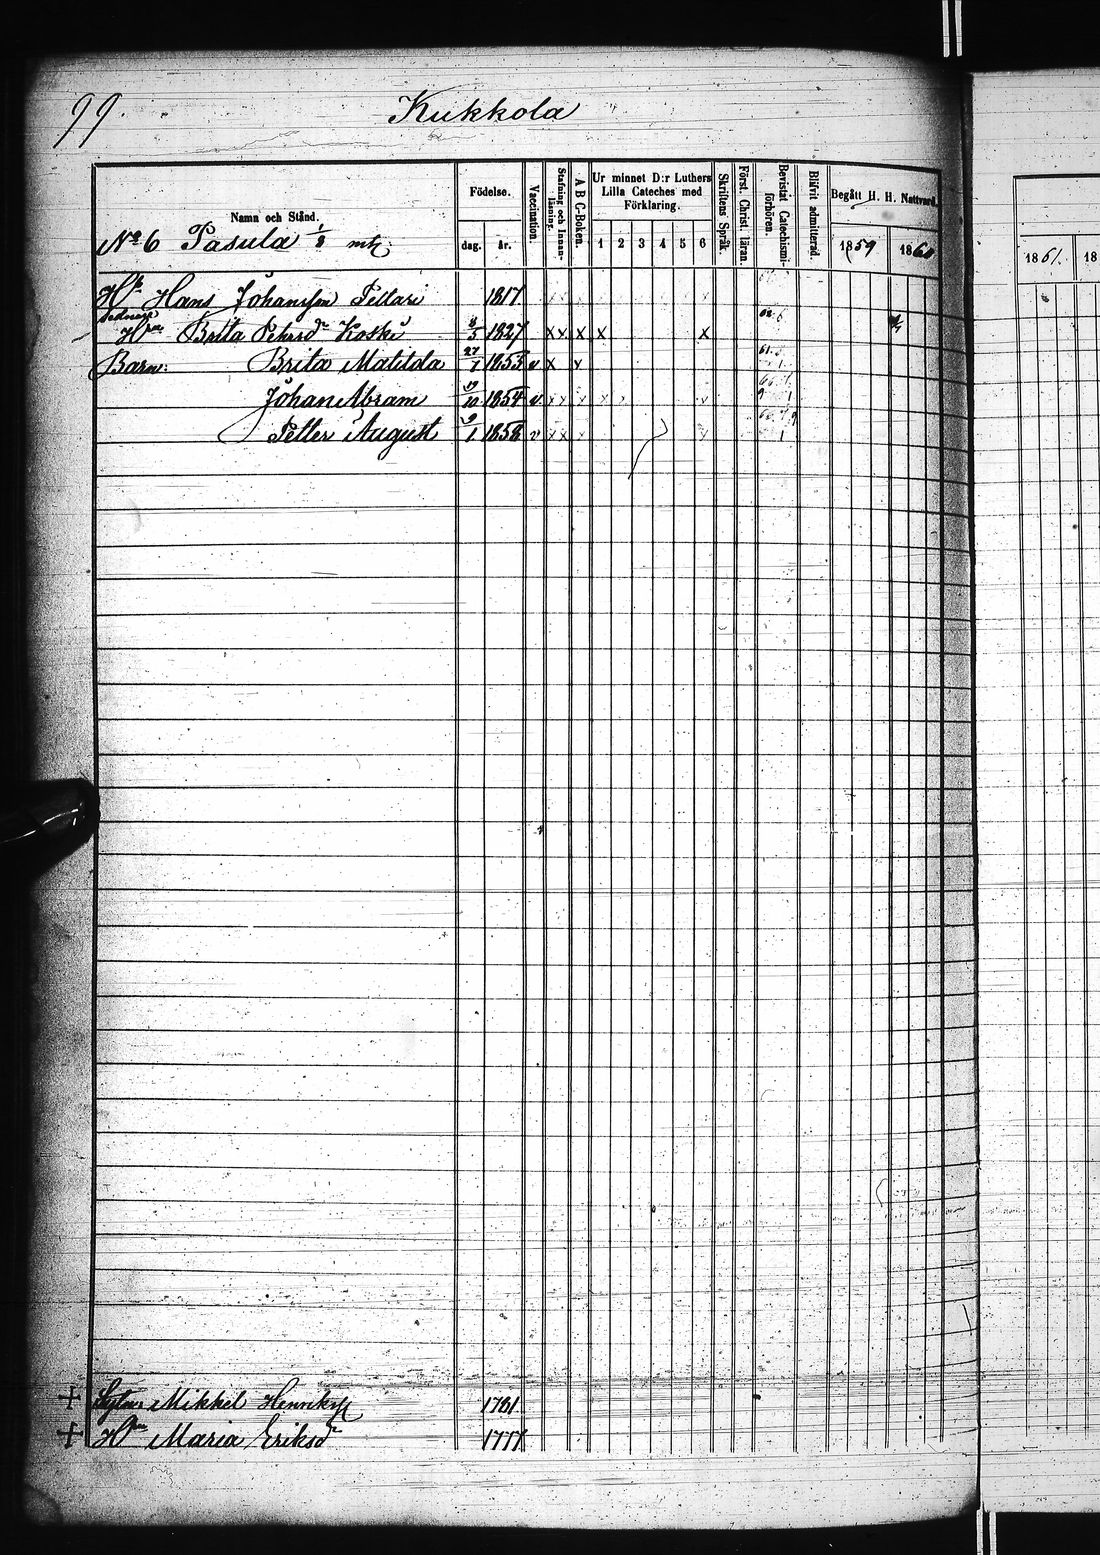 99.
Kukkola
Namn och Stånd.
Födelse.
dag.
år.
Vaccination.
Stafning och Innan-läsning.
A B C-Boken.
Ur minnet D:r Luthers Lilla Cateches med Förklaring.
1 2 3 4 5 6
Skriftens Språk.
Först. Christ. läran.
Bevistat Catechismi-förhören.
Blifvit admitterad
Begått H. H. Nattvard.
1859
1860
1861
18
No 6 Pasula 1/8 mtl:
Hans Johansson Pettari 1817
Hru Brita Pehrsdr Koski 8/5 1827 x x x x x
Barn: Brita Matilda 27/7 1853 v x v
Johan Abram 19/10 1854 v
Petter August 9/1 1858 v
+ Mikkel Henriksn 1761
+ Hru Maria Eriksdr 1777